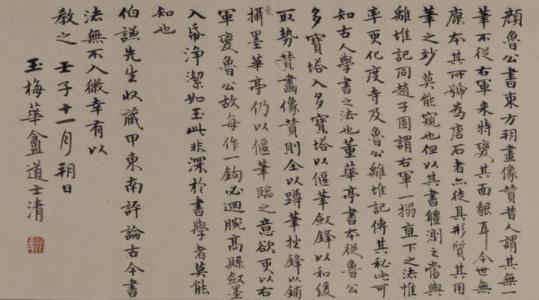 顏魯公書東方朔畫像贊昔人謂其無一
筆不從右軍來特變其面貌耳今世無
原本其所號為唐石者亦徒具形質其用
筆之妙莫能窺也但以其書體測之當與
離堆記同趙子固謂右軍一搨直下之法惟
率更化度寺及魯公離堆記傳其秘此可
知古人學書之法也董華亭書本從魯公
多寶塔入多寶塔以偃筆斂鋒以和緩
取勢贊畫像贊則全以蹲筆挫鋒以鋪
攝墨華亭仍以偃筆臨之意欲更以右
軍變魯公故每作一鉤必迴腕高懸斂墨
入審淨潔如玉此非深於書學者莫能
知也
伯謙先生收藏甲東南評論古今書
法無不入微幸有以
教之 壬子十一月朔日
玉梅華盦道士清